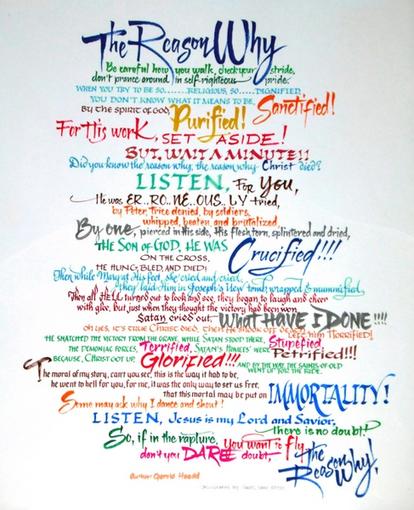 The Reason Why
Be careful how you walk, check your stride,
don't prance around in self-righteous pride.
WHEN YOU TRY TO BE SO.......RELIGIOUS, SO.....DIGNIFIED,
YOU DON'T KNOW WHAT IT MEANS TO BE,
Sanctified!
BY THE SPIRIT OF GOD, Purified!
For His work, SET ASIDE!
BUT, WAIT A MINUTE!!
Did you know the reason why, the reason why Christ died?
LISTEN, For You,
He was ER..RO..NE..OUS..LY tried,
by Peter, Trice denied, by soldiers,
whipped, beaten, and brutalized.
By one, pierced in His side, His flesh torn, splintered and dried,
THE SON OF GOD, HE WAS Crucified!!!
ON THE CROSS,
HE HUNG, BLED, AND DIED!
Then while Mary at His feet, she cried and cried,
they laid Him in Joseph's New tomb wrapped & mummified,
Then all HELL turned out to look and see, they began to laugh and cheer
with glee, but just when they thought the victory had been won,
Satan cried out, What HAVE I DONE!!!!
Oh yes, it's true Christ died, then He took off death's
HE SNATCHED THE VICTORY FROM THE GRAVE, WHILE SATAN STOOD THERE
THE DEMONIAC FORCES, Terrified, SATAN'S WERE Stupefied
Petrified!!!
BECAUSE, CHRIST GOT UP, Glorified!!! AND BY THE WAY, THE SAINTS OF OLD
WENT UP FOR THE RIDE.
The moral of my story, can't you see, this is the way it had to be,
he went to hell for you, for me, it was the only way to set us free,
that this mortal may be put on IMMORTALITY!
Some may ask why I dance and shout!
LISTEN, Jesus is my Lord and Savior,
there is no doubt!
So, if in the rapture, you want to fly,
don't you DARE doubt, The Reason Why!
Author: